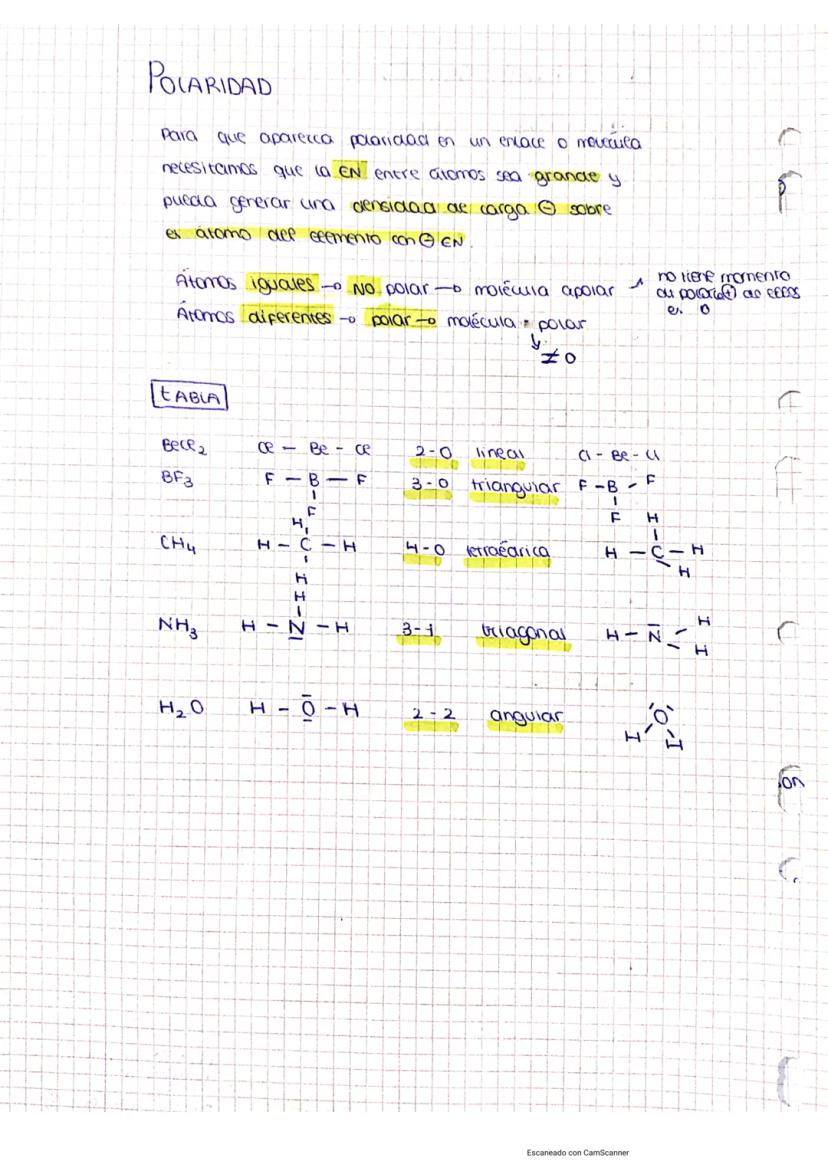 POLARIDAD
Para que aparezca polaridad en un enlace o molécula
necesitamos que la EN entre átomos sea grande y
pueda generar una densidad de carga ⊖ sobre
el átomo del elemento con ⊖ EN.
Átomos iguales → NO polar → molécula apolar
no tiene momento
Átomos diferentes → polar → molécula polar
≠ 0
TABLA
BeCl2 Cl - Be - Cl 2-0 lineal Cl - Be - Cl
BF3 F - B - F 3-0 triangular F - B - F
F F
H H
CH4 H - C - H 4-0 tetraédrica H - C - H
H H
H
NH3 H - N - H 3-1 triagonal H - N H
H
H2O H - O - H 2-2 angular O
H H
on
Escaneado con CamScanner